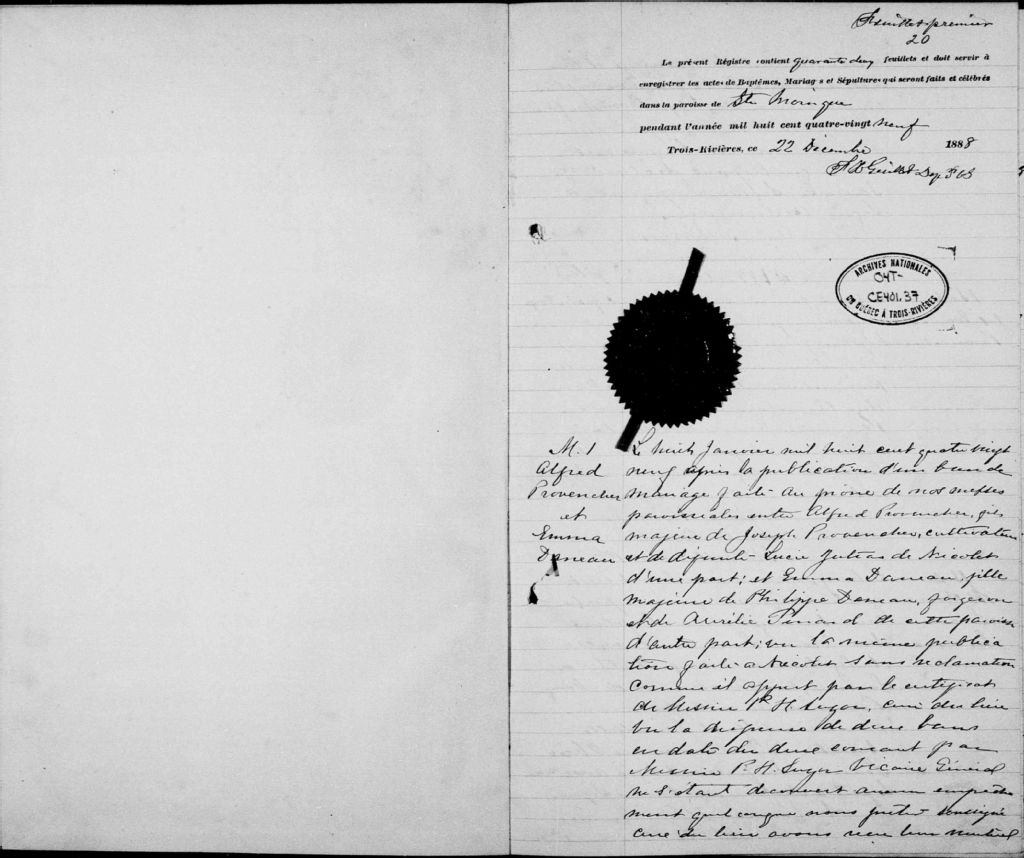 Feuillet premier
20
Le présent Régistre contient quarante deux feuillets et doit servir à
enregistrer les actes de Baptêmes, Mariages et Sépultures qui seront faits et célébrés
dans la paroisse de Ste Monique
pendant l'année mil huit cent quatre-vingt neuf
Trois-Rivières, ce 22 Décembre 1888
Dep
ARCHIVES NATIONALES
04T-
CE401,37
DU QUÉBEC À TROIS-RIVIÈRES
M. 1
Alfred
Provencher
et
Emma
Daneau
Le huit Janvier mil huit cent quatre vingt
neuf après la publication d'un ban de
mariage faite au prône de nos messes
paroissiales entre Alfred Provencher, fils
majeur de Joseph Provencher, cultivateur
et de défunte Lucie Jutras de Nicolet
d'une part; et Emma Daneau fille
majeure de Philippe Daneau, forgeron
et de Aurélie Simard de cette paroisse
d'autre part; vu la même publica
tion faite à Nicolet sans réclamation
comme il appert par le certificat
de Messire H. Suzor, curé du lieu
vu la dispense de deux bans
en date du deux courant par
Messire P. H. Suzor Vicaire Général
ne s'étant découvert aucun empêche
ment quelconque nous prêtre soussigné
curé du lieu avons reçu leur mutuel